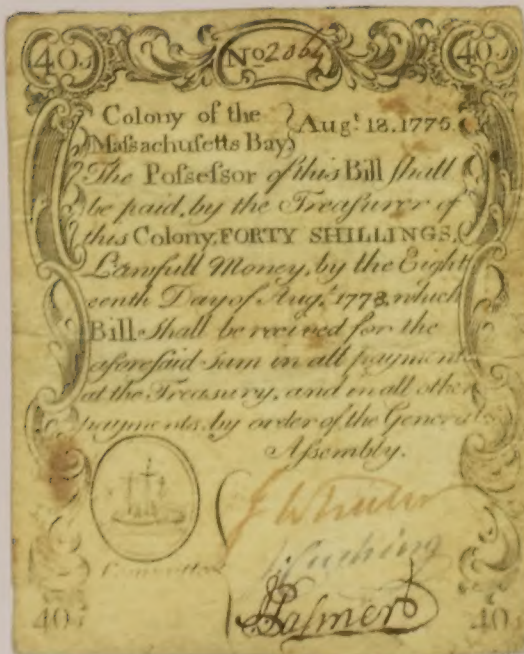 40s No 2064 40s
Colony of the
Maſsachusetts Bay } Augt. 18. 1775.
The Poſseſsor of this Bill ſhall
be paid, by the Treaſurer of
this Colony, FORTY SHILLINGS,
Lawfull Money, by the Eight
eenth Day of Augt. 1778, which
Bill ſhall be received for the
aforeſaid ſum in all payments
at the Treaſury, and in all other
payments, by order of the General
Aſsembly.
Cushing
Committee
J Palmer
40s 40s